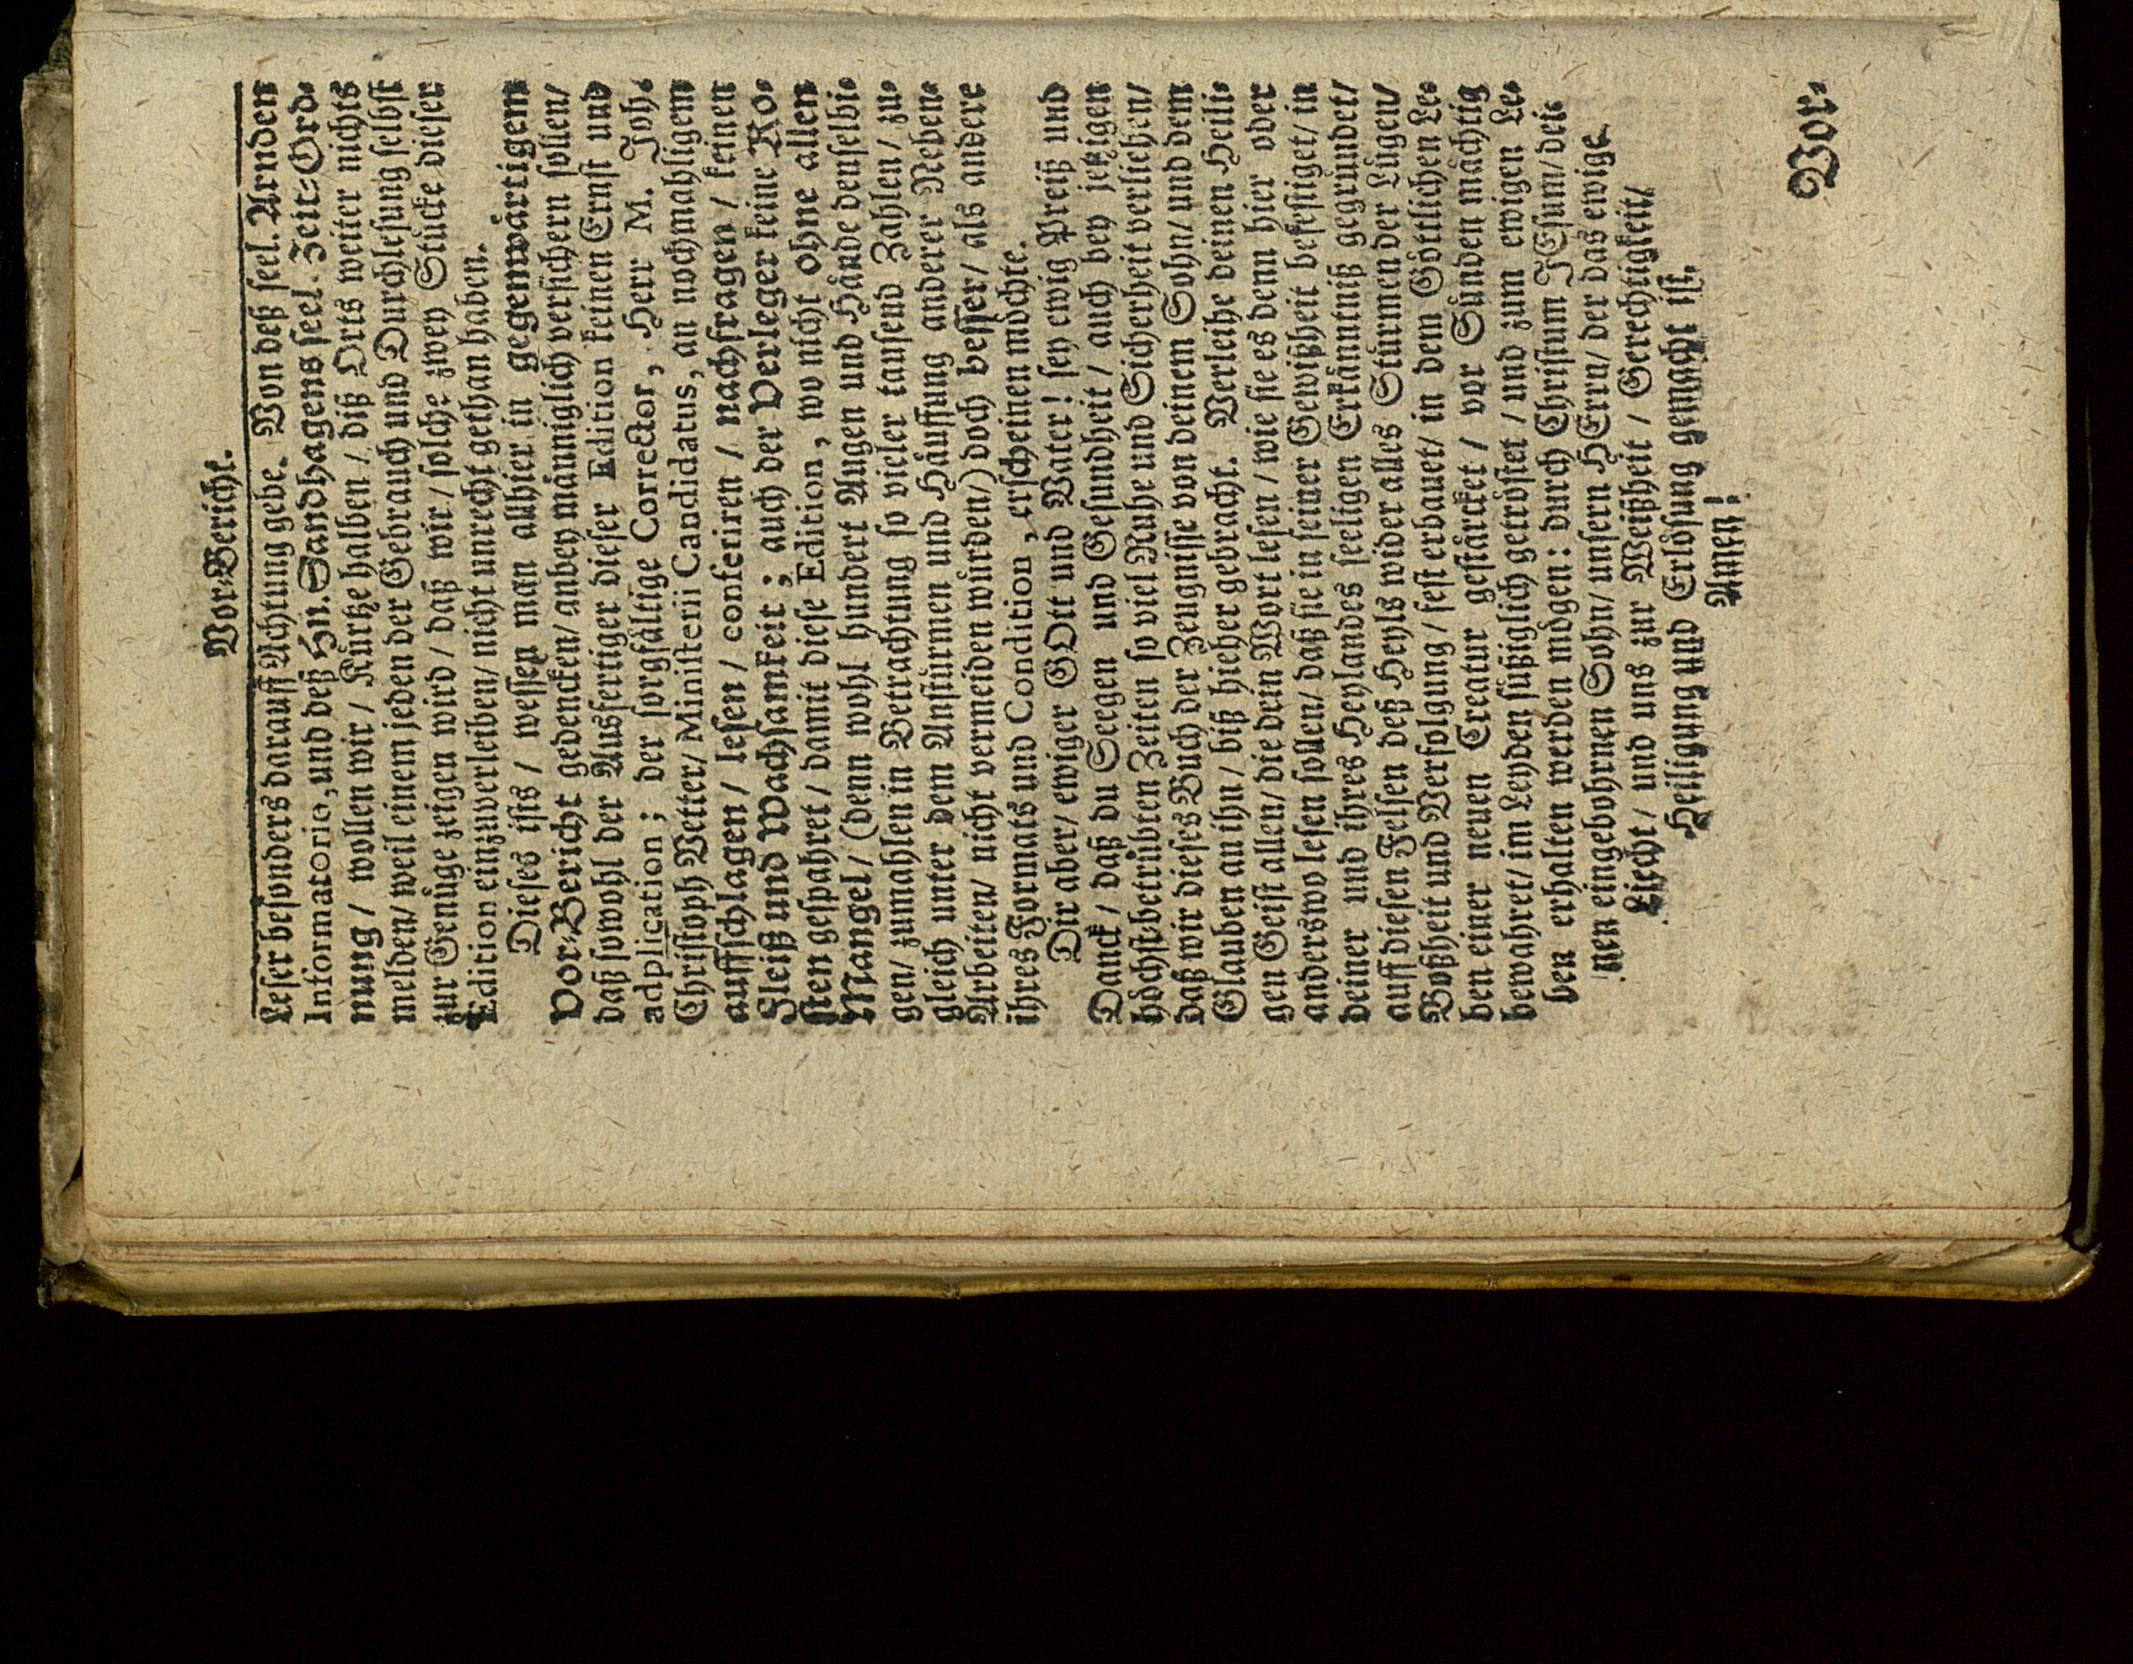 Vor-Bericht.
Leser besonders darauff Achtung gebe. Von deß seel. Arnden
Informatorio, und deß Hn. Sandhagens seel. Zeit-Ord-
nung / wollen wir / Kürtze halben / diß Orts weiter nichts
melden/ weil einem jeden der Gebrauch und Durchlesung selbst
zur Genüge zeigen wird / daß wir / solche zwey Stücke dieser
Edition einzuverleiben/ nicht unrecht gethan haben.
Dieses ists / wessen man allhier in gegenwärtigem
Vor-Bericht gedencken/ anbey männiglich versichern sollen/
daß sowohl der Ausfertiger dieser Edition keinen Ernst und
adplication; der sorgfältige Corrector, Herr M. Joh.
Christoph Vetter/ Ministerii Candidatus, an nochmahligem
auffschlagen / lesen / conferiren / nachfragen / keinen
Fleiß und Wachsamkeit; auch der Verleger keine Ko-
sten gespahret / damit diese Edition, wo nicht ohne allen
Mangel / (denn wohl hundert Augen und Hände denselbi-
gen/ zumahlen in Betrachtung so vieler tausend Zahlen / zu-
gleich unter dem Anstürmen und Häuffung anderer Neben-
Arbeiten/ nicht vermeiden würden/) doch besser / als andere
ihres Formats und Condition, erscheinen möchte.
Dir aber/ ewiger GOtt und Vater! sey ewig Preiß und
Danck / daß du Seegen und Gesundheit / auch bey jetzigen
höchst-betrübten Zeiten so viel Ruhe und Sicherheit verliehen/
daß wir dieses Buch der Zeugnisse von deinem Sohn/ und dem
Glauben an ihn / biß hieher gebracht. Verleihe deinen Heili-
gen Geist allen/ die dein Wort lesen / wie sie es denn hier oder
anderswo lesen sollen/ daß sie in seiner Gewißheit befestiget/ in
deiner und ihres Heylandes seeligen Erkänntniß gegründet/
auff diesen Felsen deß Heyls wider alles Stürmen der Lügen/
Boßheit und Verfolgung / fest erbauet/ in dem Göttlichen Le-
ben einer neuen Creatur gestärcket / vor Sünden mächtig
bewahret/ im Leyden süßiglich getröstet / und zum ewigen Le-
ben erhalten werden mögen: durch Christum JEsum/ dei-
nen eingebohrnen Sohn/ unsern HErrn/ der das ewige
Liecht / und uns zur Weißheit / Gerechtigkeit/
Heiligung und Erlösung gemacht ist.
Amen!
Vor-